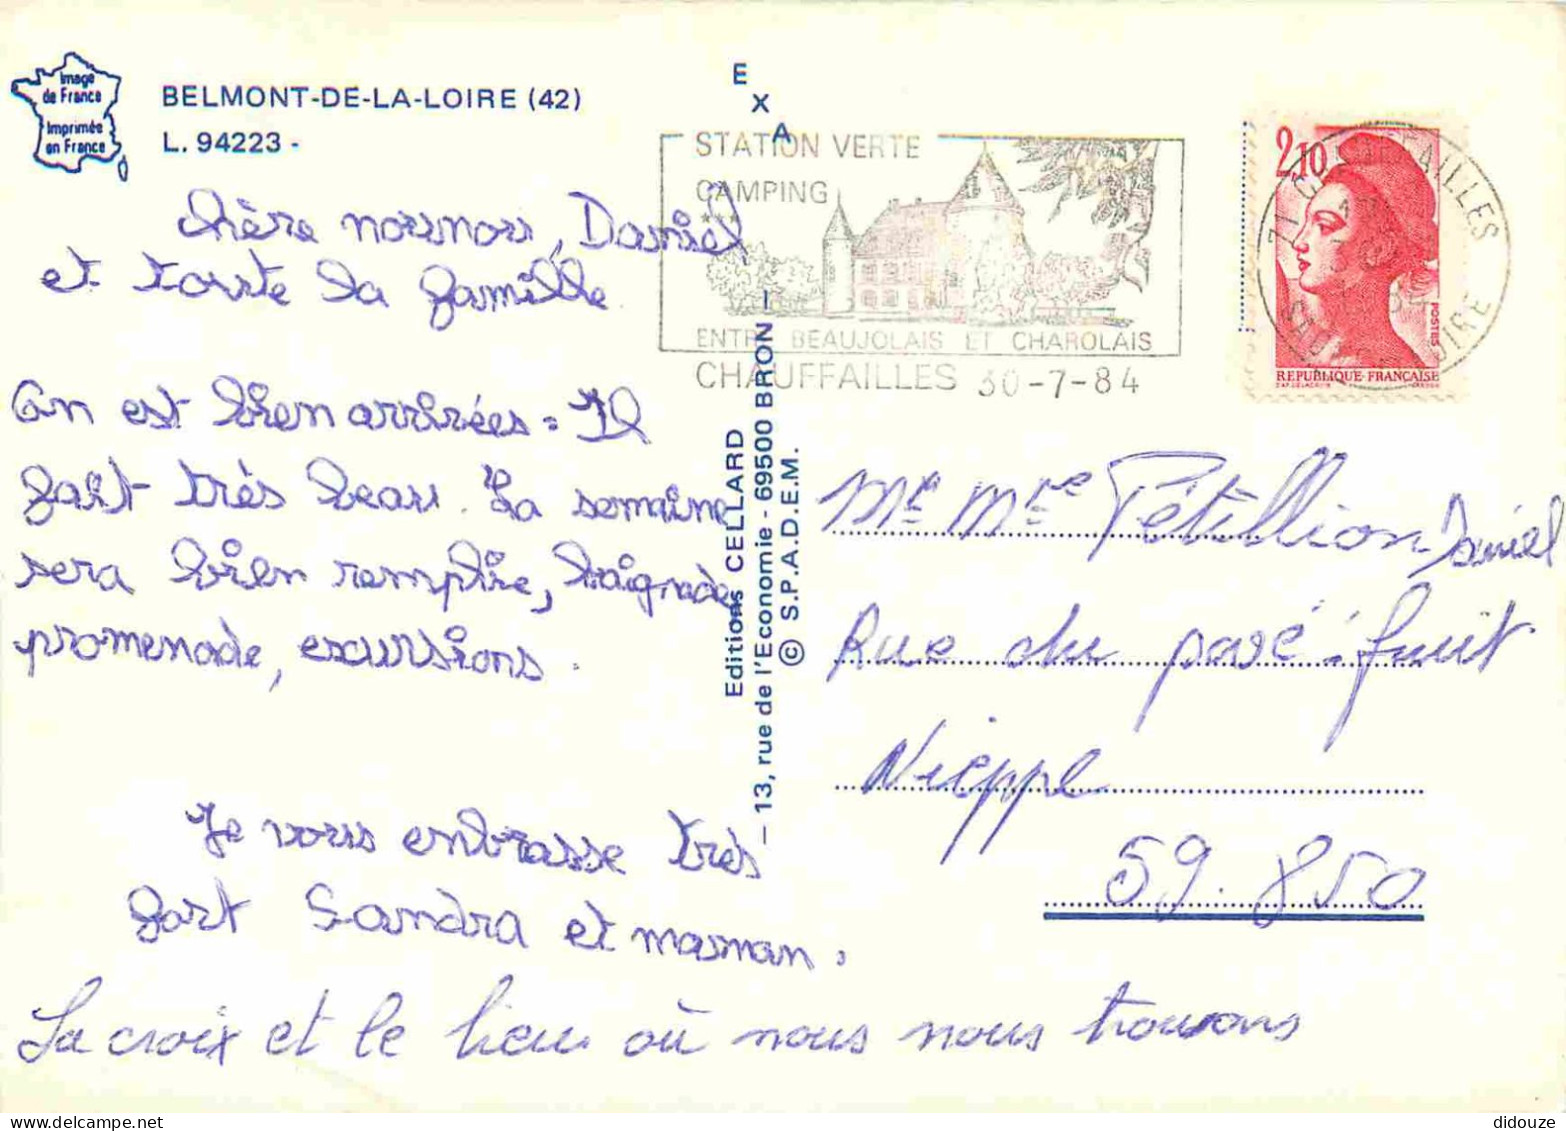 Image
de France
Imprimée
en France
BELMONT-DE-LA-LOIRE (42)
L. 94223 -
chère nounou, Daniel
et toute la famille.
On est bien arrivées. Il
fait très beau. La semaine
sera bien remplie, baignade
promenade, excursions.
Je vous embrasse très
fort Sandra et maman.
La croix et le lieu où nous nous trouvons
EXA
Editions CELLARD
13, rue de l'Economie - 69500 BRON
© S.P.A.D.E.M.
STATION VERTE
CAMPING
***
ENTRE BEAUJOLAIS ET CHAROLAIS
CHAUFFAILLES 30-7-84
2,10
POSTES
REPUBLIQUE FRANÇAISE
71 CHAUFFAILLES
Mr Mme Pétillion Daniel
Rue du pavé fruit
Nieppe
59.850
didouze